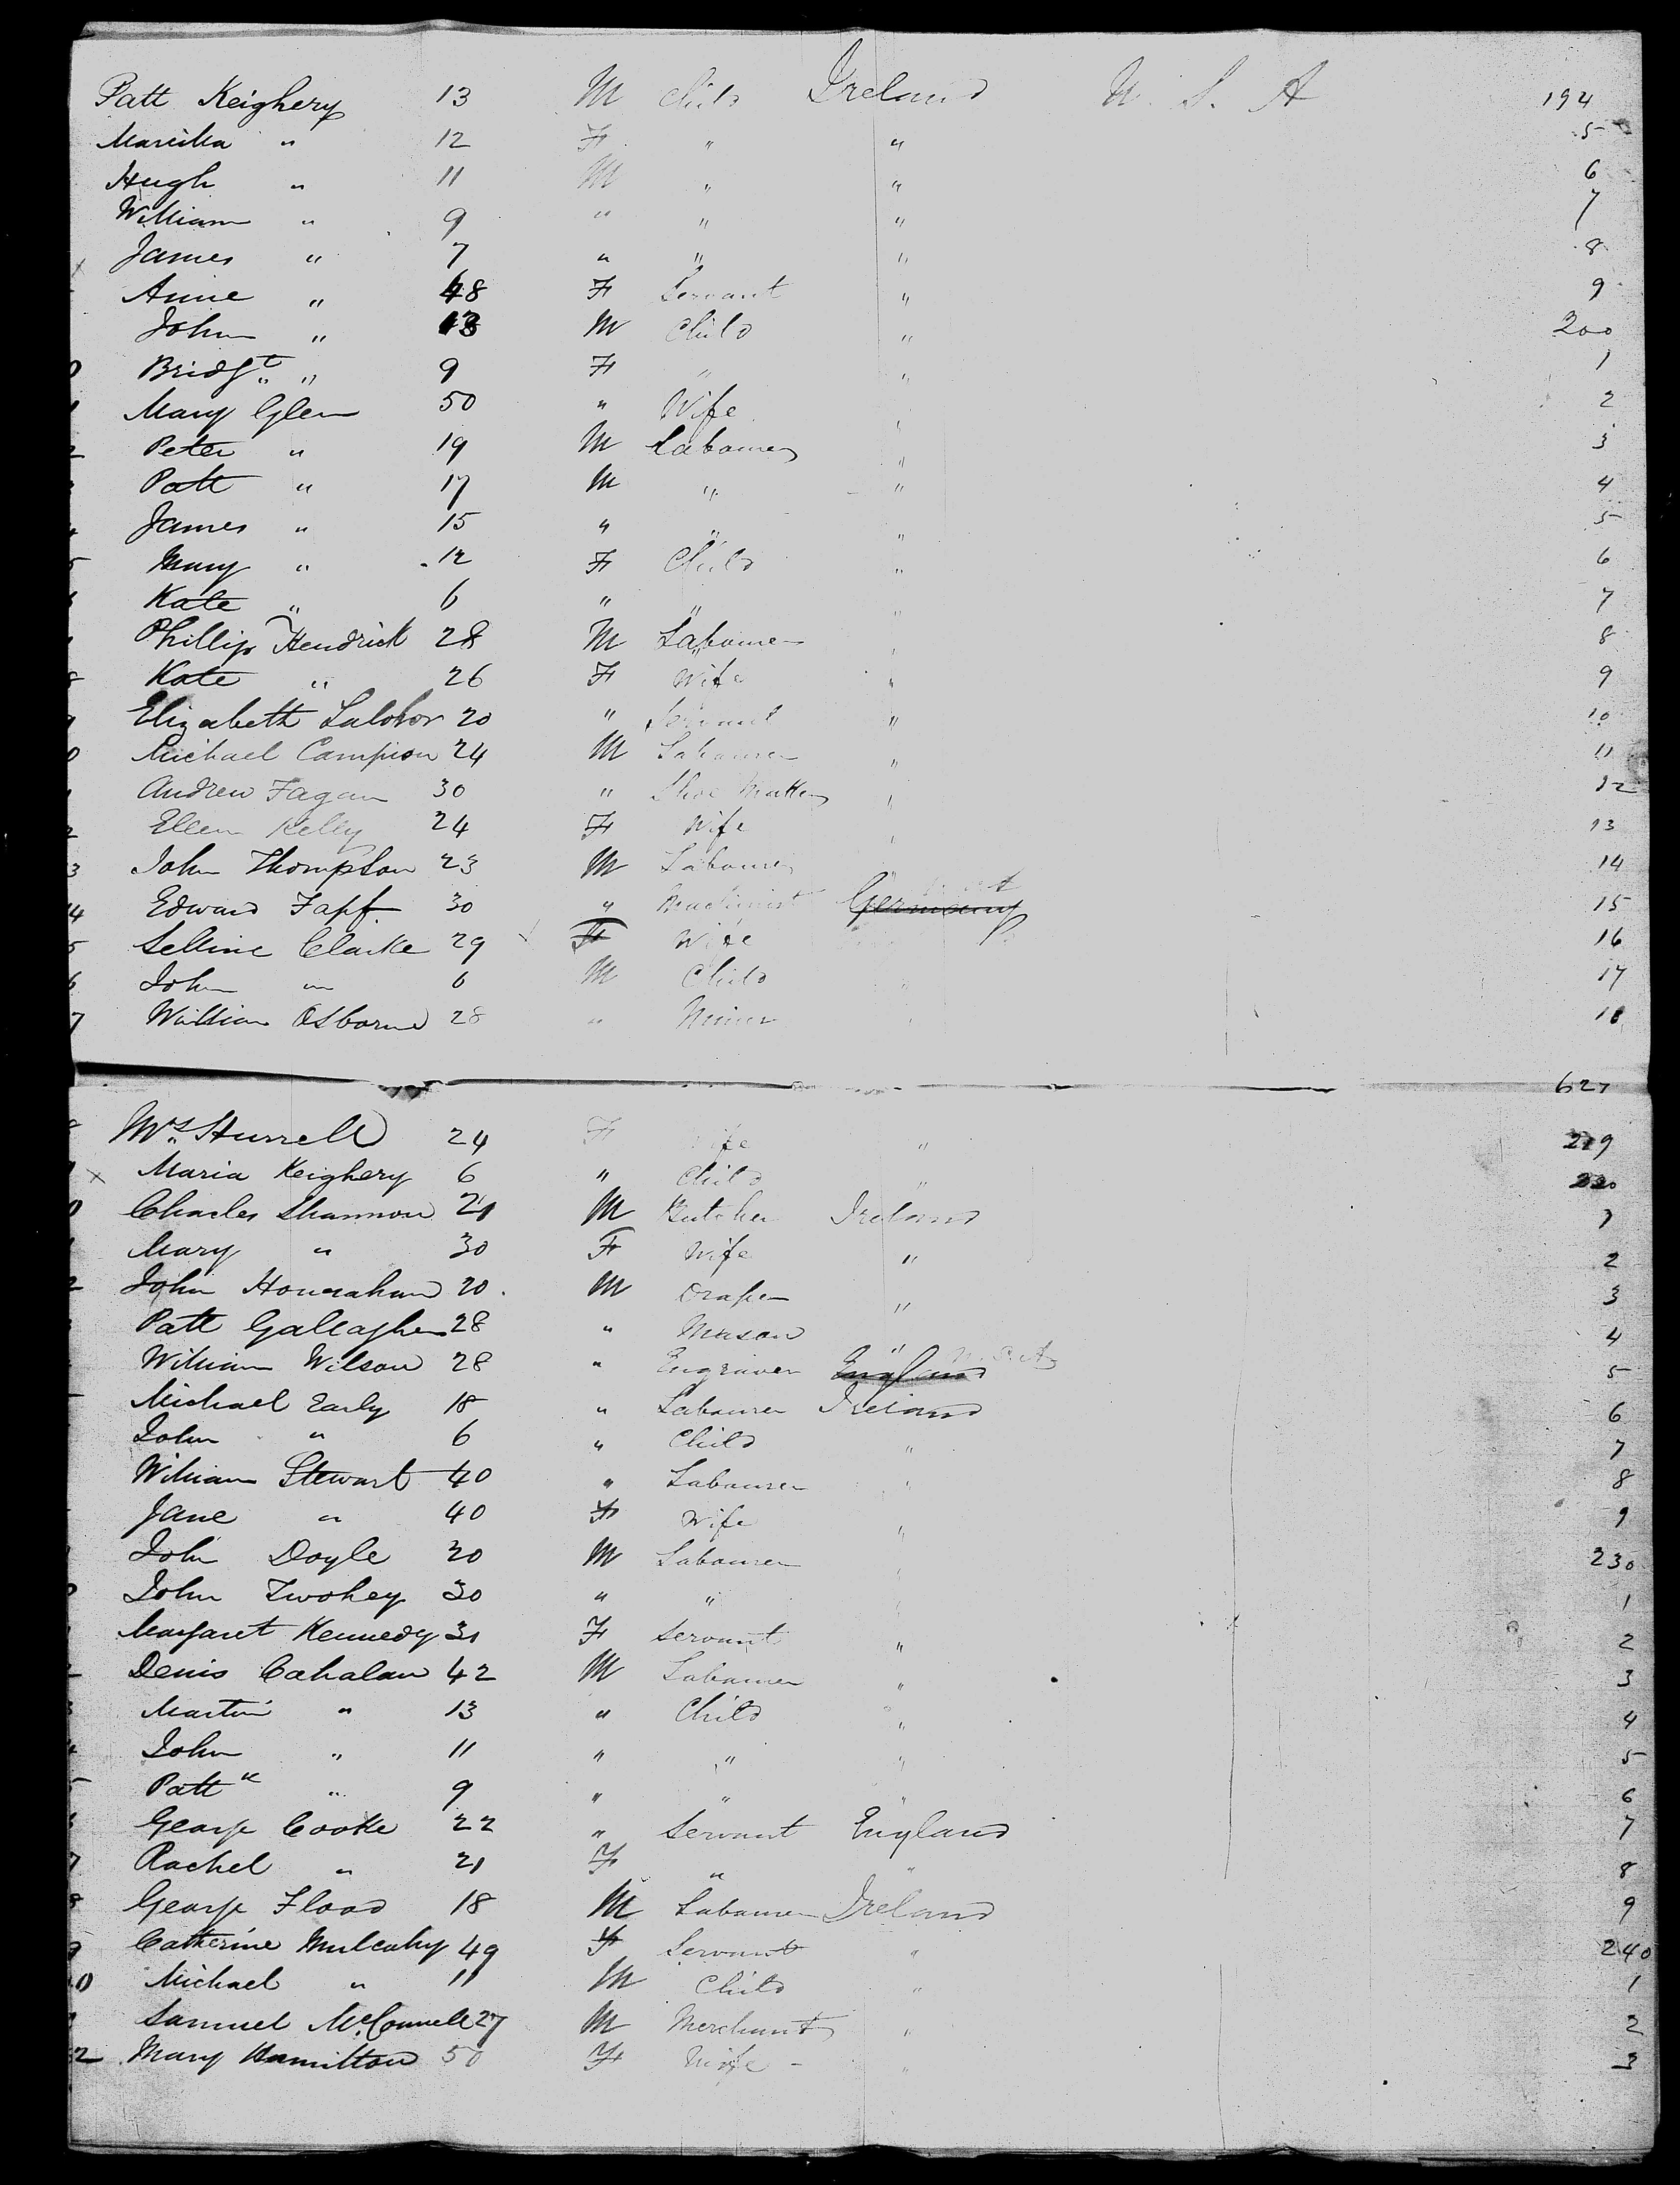 Patt Keighery 13 M Child Ireland U. S. A 194
" 12 F " " 5
Hugh " 11 M " " 6
William " 9 " " " 7
James " 7 " " " 8
Anne " 48 F Servant " 9
John " 13 M Child " 200
Bridgt " 9 F " " 1
Mary Glen 50 " Wife " 2
Peter " 19 M Labourer " 3
Patt " 17 M " " 4
James " 15 " " " 5
Mary " 12 F Child " 6
Kate " 6 " " " 7
Phillip Hendrick 28 M Labourer " 8
Kate " 26 F Wife " 9
Elizabeth Lalor 20 " Servant " 10
Michael Campion 24 M Labourer " 11
Andrew Fagan 30 " Shoe Maker " 12
Ellen Kelly 24 F Wife " 13
John Thompson 23 M Labourer 14
Edward 30 " Machinist Germany 15
5 Selline Clarke 29 F Wife 16
6 John " 6 M Child " 17
7 William Osborne 28 " Miner " 18
627
Mrs Hurrell 24 F Wife " 219
x Maria Keighery 6 " Child " 220
Charles Shannon 21 M Butcher Ireland 1
Mary " 30 F Wife " 2
John 20 M Draper " 3
Patt Gallagher 28 " Mason " 4
William Wilson 28 " Engraver England U.S.A 5
Michael Early 18 " Labourer Ireland 6
John " 6 " Child " 7
William Stewart 40 " Labourer " 8
Jane " 40 F Wife " 9
John Doyle 20 M Labourer " 230
John Twohey 30 " " " 1
Margaret Kennedy 31 F Servant " 2
Denis Cahalan 42 M Labourer " 3
Martin " 13 " Child " 4
John " 11 " " " 5
Pattk " 9 " " " 6
George Cooke 22 " Servant England 7
Rachel " 21 F " " 8
George Flood 18 M Labourer Ireland 9
Catherine Mulcahy 49 F Servant " 240
Michael " 11 M Child " 1
Samuel McConnell 27 M Merchant " 2
2 Mary Hamilton 50 F Wife " 3